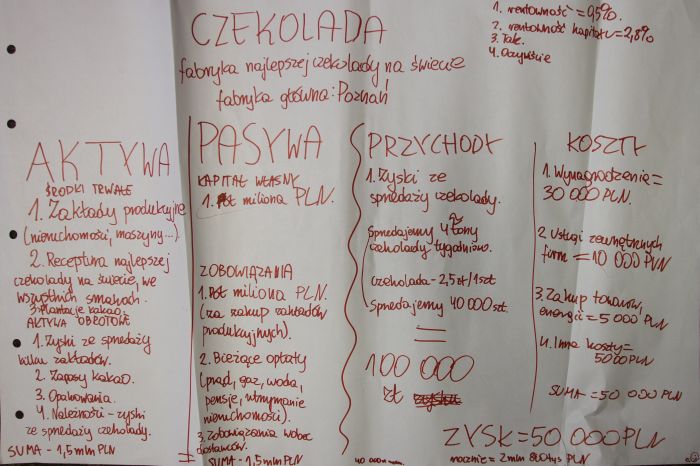 CZEKOLADA
fabryka najlepszej czekolady na świecie
fabryka główna: Poznań
1. rentowność = 0,5%.
2. rentowność kapitału = 2,8%
3. Tak.
4. Oczywiście
AKTYWA
ŚRODKI TRWAŁE
1. Zakłady produkcyjne
(nieruchomości, maszyny...)
2. Receptura najlepszej
czekolady na świecie, we
wszystkich smakach.
3. Plantacje kakao.
AKTYWA OBROTOWE
1. Zyski ze sprzedaży
kilku zakładów.
2. Zapasy kakao.
3. Opakowania.
4. Należności - zyski
ze sprzedaży czekolady.
SUMA - 1,5 mln PLN
=
PASYWA
KAPITAŁ WŁASNY
1. Pół miliona PLN.
ZOBOWIĄZANIA
1. Pół miliona PLN.
(za zakup zakładów
produkcyjnych).
2. Bieżące opłaty
(prąd, gaz, woda,
pensje, utrzymanie
nieruchomości).
3. Zobowiązania wobec
dostawców.
SUMA - 1,5 mln PLN
PRZYCHODY
1. Zyski ze
sprzedaży czekolady.
Sprzedajemy 4 tony
czekolady tygodniowo.
czekolada - 2,5 zł/1szt
Sprzedajemy 40 000 szt.
=
100 000
zł
KOSZTY
1. Wynagrodzenie =
30 000 PLN.
2. Usługi zewnętrznych
firm = 10 000 PLN
3. Zakup towarów,
energii = 5 000 PLN
4. Inne koszty =
5000 PLN
SUMA = 50 000 PLN
ZYSK = 50 000 PLN
rocznie = 2 mln 800 tys PLN